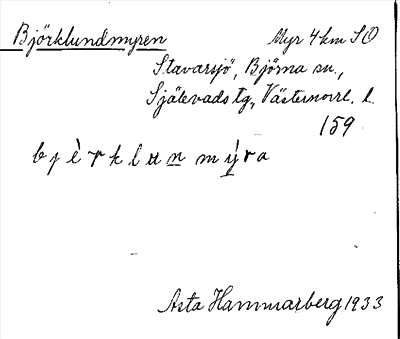 Björklundmyren Myr 4 km SO
Stavarsjö, Björna sn.,
Själevads tg., Västernorrl. l.
159
bjèrklun mýra
Asta Hammarberg 1933